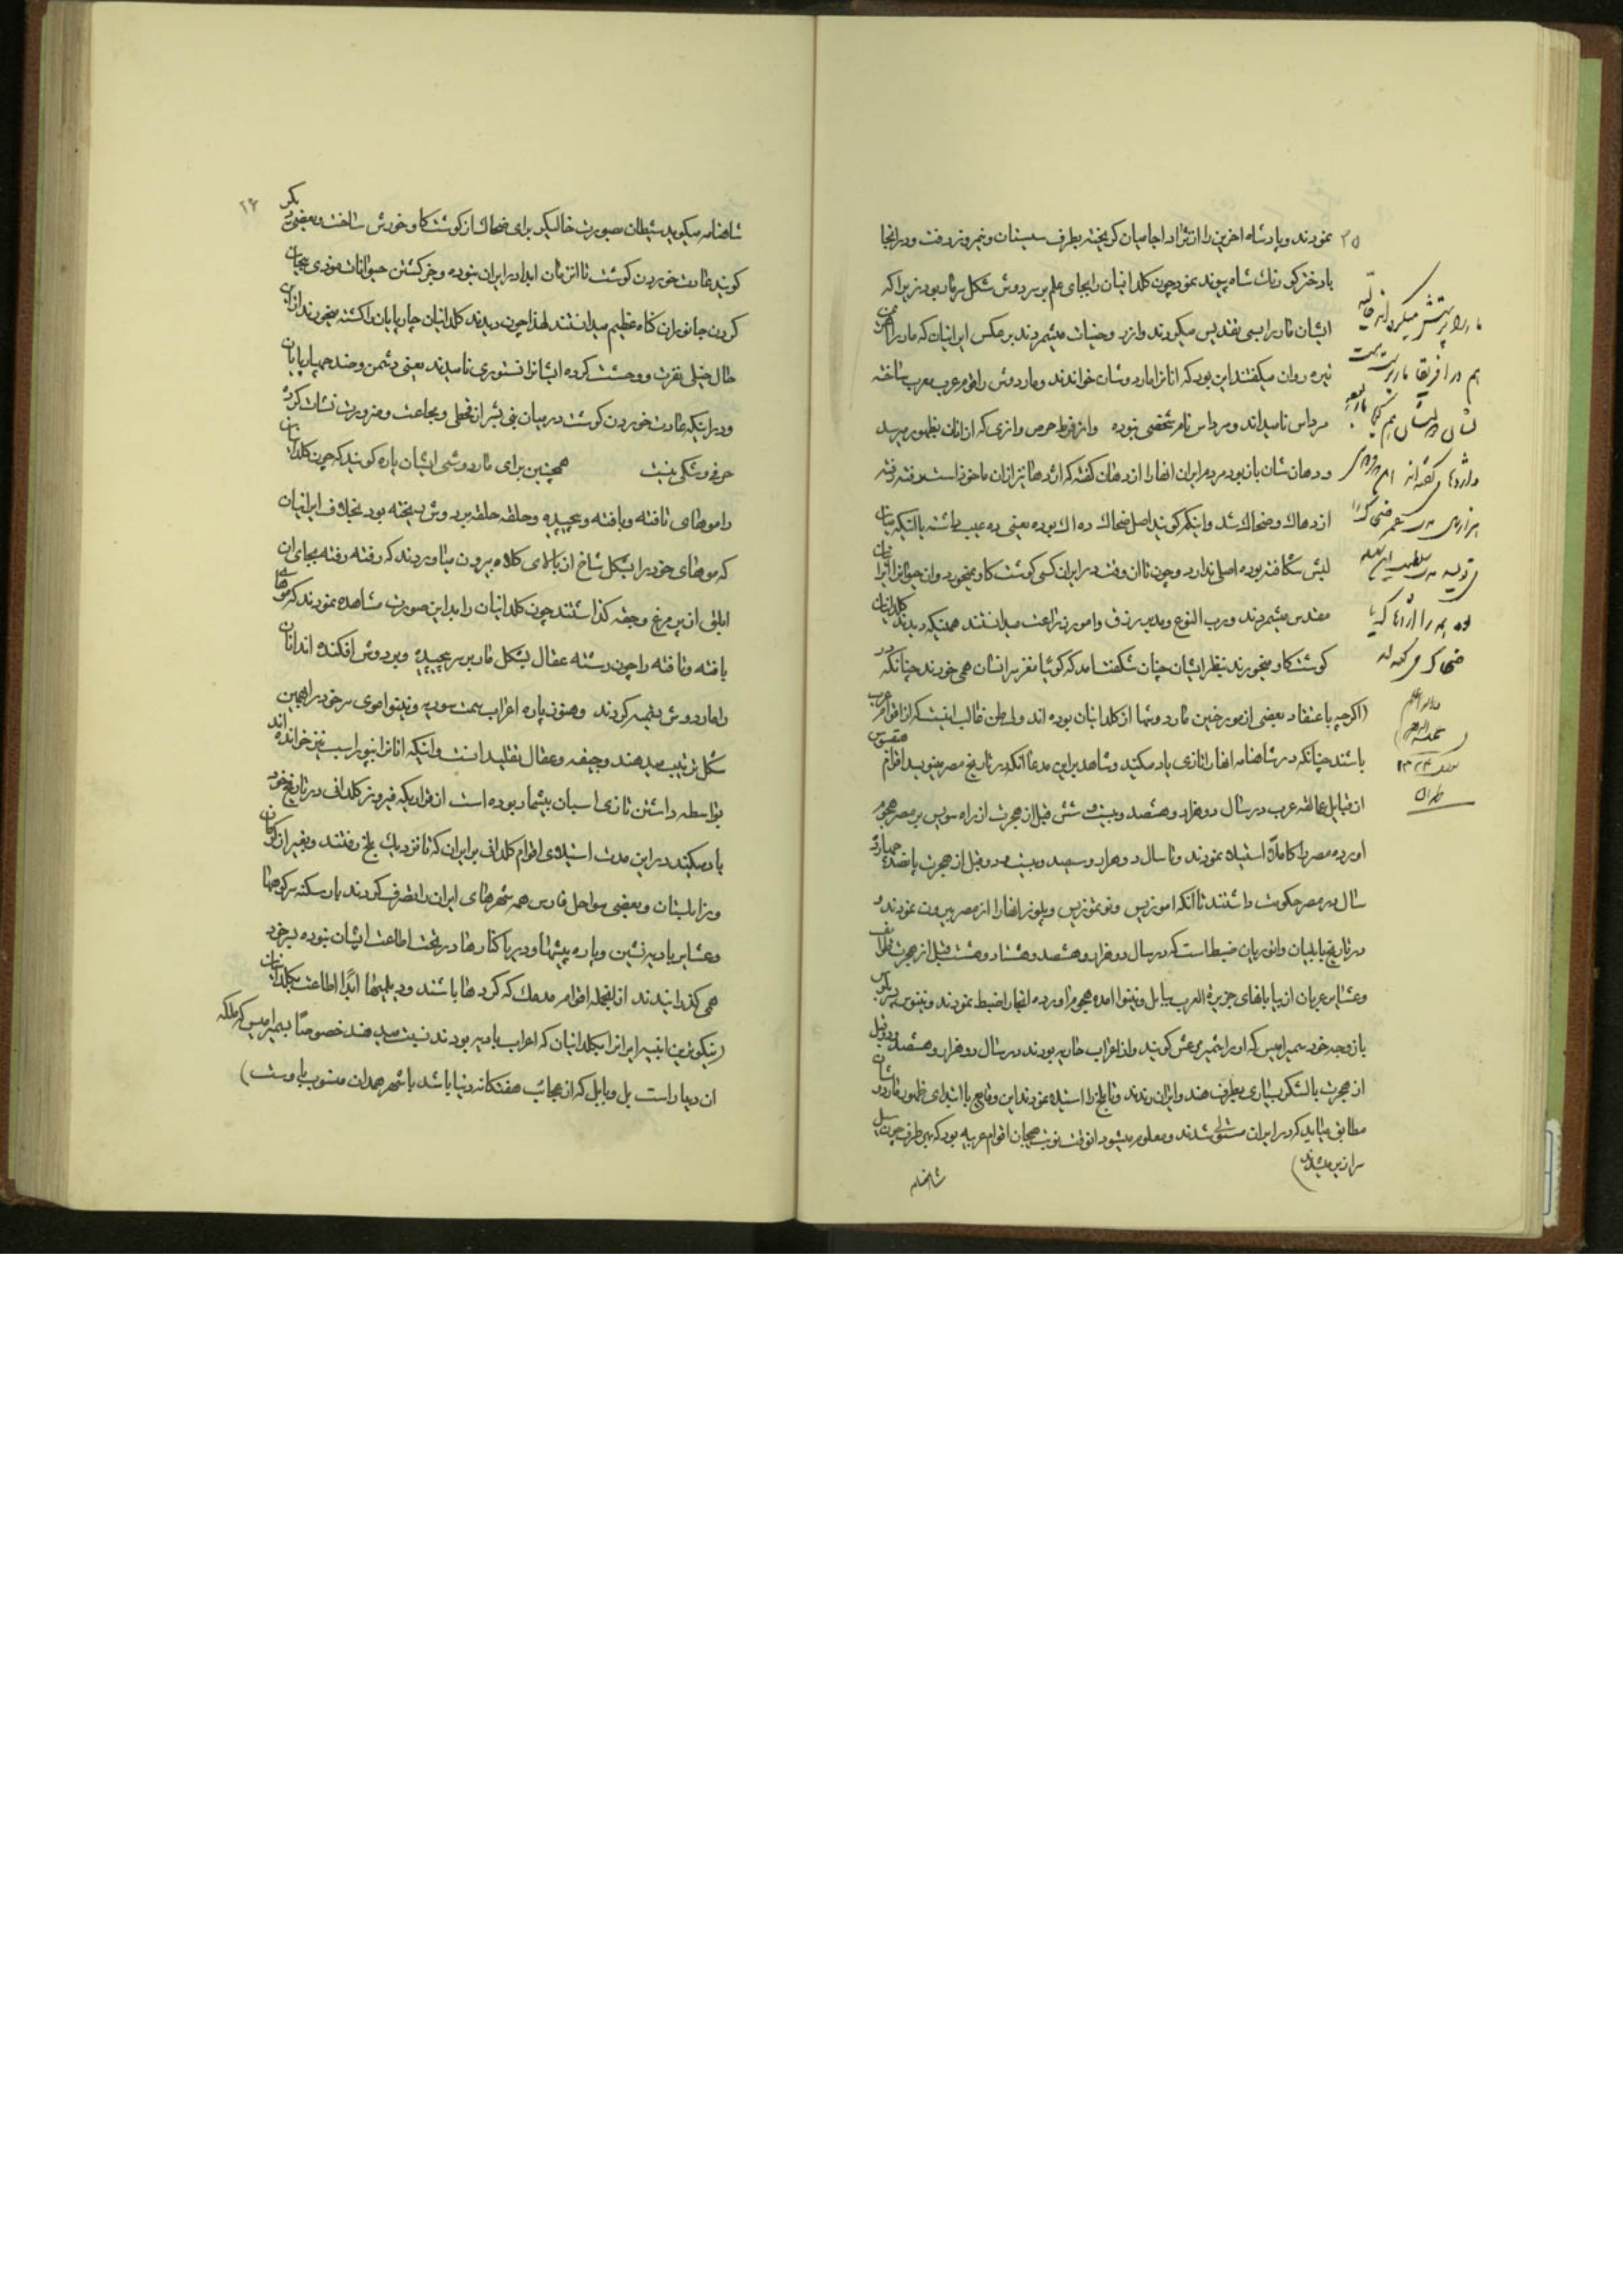 نمودند و پادشاه اخرین را از نژاد اجامیان کریخته بطرف سیستان و نیمروز رفت و در انجا
با دختر کورنك شاه پیوند نمود چون کلدانیان را بجای علم بر سر دوش شکل سر مار بود زیرا که
ایشان مار را بسی تقدیس میکردند و از رب وحنیات میشمردند بر عکس ایرانیان که مار را اهرمن
تیره روان میگفتند این بود که انانرا مار دوشان خواندند و مار دوش را قوم عرب معرب ساخته
مرداس نامیداند و مرداس نام شخصی نبوده و از فرط حرص و ازی که از انان بظهور میرسید
و دهان شان باز بود مردم ایران انها را اژدهان گفته که اژدها نیز از ان ماخوذ است رفته رفته
اژدهاك و ضحاك شد و اینکه کویند اصل ضحاك ده اك بوده یعنی ده عیب داشته یا انکه میان
لبش شکافته بوده اصلی ندارد و چون تا ان وقت در ایران کسی کوشت کاو نمیخورد و ان حیوانرا ایرانیان
مقدس میشمردند و رب النوع و مدبر رزق و امور زراعت میدانستند همینکه دیدند کلدانیان
کوشت کاو میخورند بنظر ایشان چنان شکفت امد که کویا مغز سر انسان همی خورند چنانکه در
(اگرچه باعتقاد بعضی از مورخین مار دوشها از کلدانیان بوده اند ولی ظن غالب اینست که از اقوام عرب
باشند چنانکه در شاهنامه انها را تازی یاد میکند و شاهد بر این مدعا انکه در تاریخ مصر مینویسد اقوام هیقسوس
از قبایل عمالقه عرب در سال دو هزار و هشتصد و بیست و شش قبل از هجرت از راه سویس بر مصر هجوم
اورده مصر را کاملاً استیلا نمودند و تا سال دو هزار و سیصد و بیست و دو قبل از هجرت پانصد و چهار
سال در مصر حکومت داشتند تا انکه اموزیس و توتموزیس و پلوز انها را از مصر بیرون نمودند و
در تاریخ بابلیان و اثوریان ضبط است که در سال دو هزار و هشتصد و هشتاد و هشت قبل از هجرت طوایف
و عشایر عربان از بیابانهای جزیرة العرب ببابل و نینوا امده هجوم اورده انجا را ضبط نمودند و نینوس بزرك
با زوجه خود سمیرامیس که او را شمیر میعش کویند و از اعراب حاربه بودند در سال دو هزار و هشتصد و دو قبل
از هجرت با لشکر بسیاری بطرف هند و ایران رندند و تا بلخ را استیلا نمودند این وقایع با ابتدای ظهور مار دوشان
مطابق میاید که در ایران مستولی شدند و معلوم میشود انوقت نوبت هیجان اقوام عربیه بود که بهر طرف چون سیل
سرازیر میشدند)
شاهنامه
۲۵
مار را پرستش میکرده اند
هم در افریقا مار پرست
سنه ۱۳۲۴
طهران
۲۶
شاهنامه میکوید شیطان بصورت خالیکر برای ضحاك از کوشت کاو خورش ساخت و بعضی دیگر
کویند عادت خوردن کوشت تا انزمان ابدا در ایران نبوده و جز کشتن حیوانات موذی بیجان
کردن جانوران کناه عظیم میدانستند لهذا چون دیدند کلدانیان چارپایان را کشته میخورند از این
حال خیلی نفرت و وحشت کرده ایشانرا نستوری نامیدند یعنی دشمن و ضد چهارپایان
و در اینکه عادت خوردن کوشت در میان بنی بشر از قحطی و مجاعت و ضرورت نشات کرده
حرفی و شکی نیست همچنین برای مار دوشی ایشان پاره کویند که چون کلدانیان
را موهای تافته و بافته و پیچیده و حلقه حلقه بر دوش ریخته بود بخلاف ایرانیان
که موهای خود را بشکل شاخ از بالای کلاه بیرون میاوردند که رفته رفته بجای ان
ابلق از پر مرغ وجقه کذاشتند چون کلدانیان را بداین صورت مشاهده نمودند که موهای
بافته و تافته را چون رسته عقال بشکل مار بر سر پیچیده و بر دوش افکنده اند انان
را مار دوش نسمیه کردند و هنوز پاره اعراب سمت سوریه و نینوا موی سر خود را بهمین
شکل ترتیب میدهند و چفیه و عقال تقلید انست و اینکه انانرا بیوراسب نیز خوانده اند
بواسطه داشتن تازی اسبان بیشمار بوده است از قراریکه فیروز کلدانی در تاریخ خود
یاد میکند در این مدت استیلای اقوام کلدانی بر ایران که تا نزدیك بلخ رفتند و بغیر از کرمان
و زابلستان و بعضی سواحل فارس همه شهرهای ایران را تصرف کردند باز سکنه سر کوهها
و عشایر بادیه نشین و پاره بیشها و دریا کنارها در تحت اطاعت ایشان نبوده بسر خود
همی کذرانیدند از انجمله اقوام مدهاك که کردها باشند و دیلمیها ابدًا اطاعت بکلدانیان
(نیکوترین ابنیه ایرانرا بکلدانیان که اعراب بادیه بودند نسبت میدهند خصوصًا بسمیرامیس که ملکه
ان دیار است پل و بابل که از عجائب هفتکانه دنیا باشد با شهر همدان منسوب باوست)